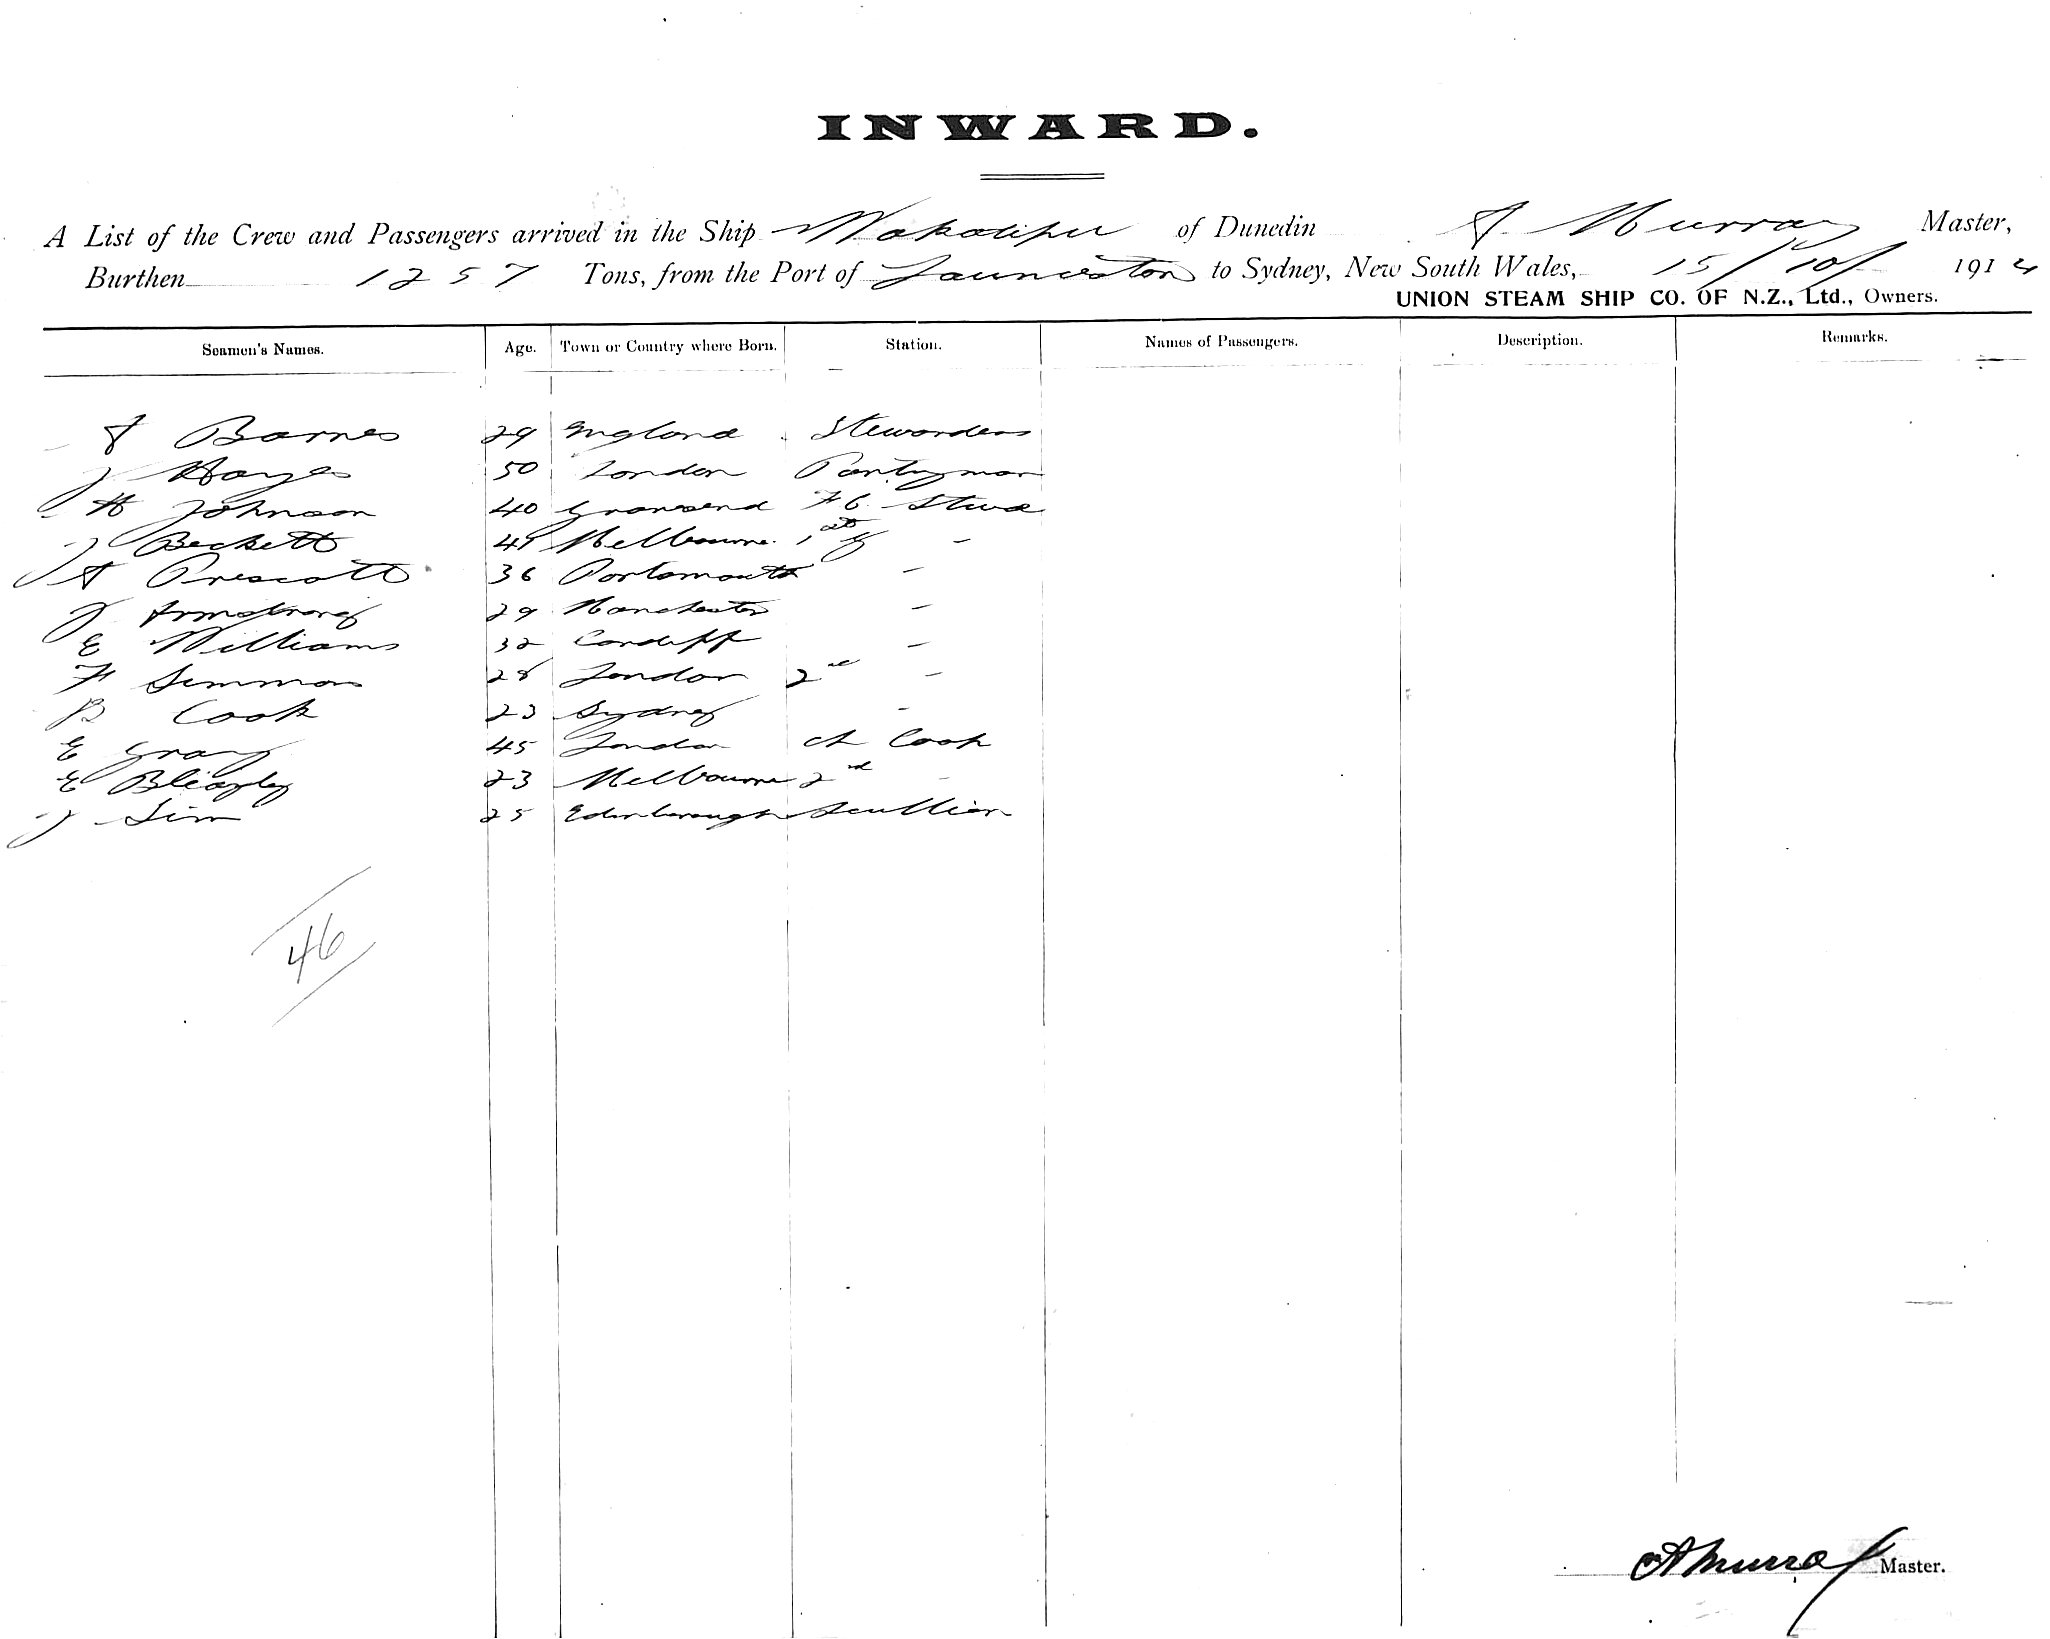 INWARD.
A List of the Crew and Passengers arrived in the Ship Wakatipu of Dunedin A. Murray Master,
Burthen 1257 Tons, from the Port of Launceston to Sydney, New South Wales, 15/10/ 1914
UNION STEAM SHIP CO. OF N.Z., Ltd., Owners.
Seamen's Names. Age. Town or Country where Born. Station. Names of Passengers. Description. Remarks.
Barnes 29 England Stewardess
J Hayes 50 London Pantryman
H Johnson 40 Gravesend F C Stwd
J Beckett 41 Melbourne 1st -
A Prescott 36 Portsmouth -
J Armstrong 29 Manchester -
E Williams 32 Cardiff -
F Simmons 28 London 2nd -
B Cook 23 Sydney -
E Gray 45 London Ch Cook
E 23 Melbourne 2nd -
J Sim 25 Edinborough Scullion
46
A Murray Master.